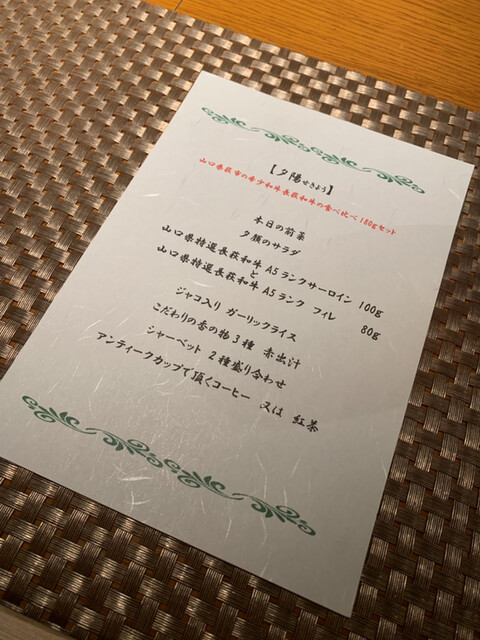 【夕陽せきよう】
山口県萩市の希少和牛長萩和牛の食べ比べ180gセット
本日の前菜
夕顔のサラダ
山口県特選長萩和牛 A5ランクサーロイン 100g
と
山口県特選長萩和牛 A5ランク フィレ 80g
ジャコ入り ガーリックライス
こだわりの香の物3種 赤出汁
シャーベット 2種盛り合わせ
アンティークカップで頂くコーヒー 又は 紅茶